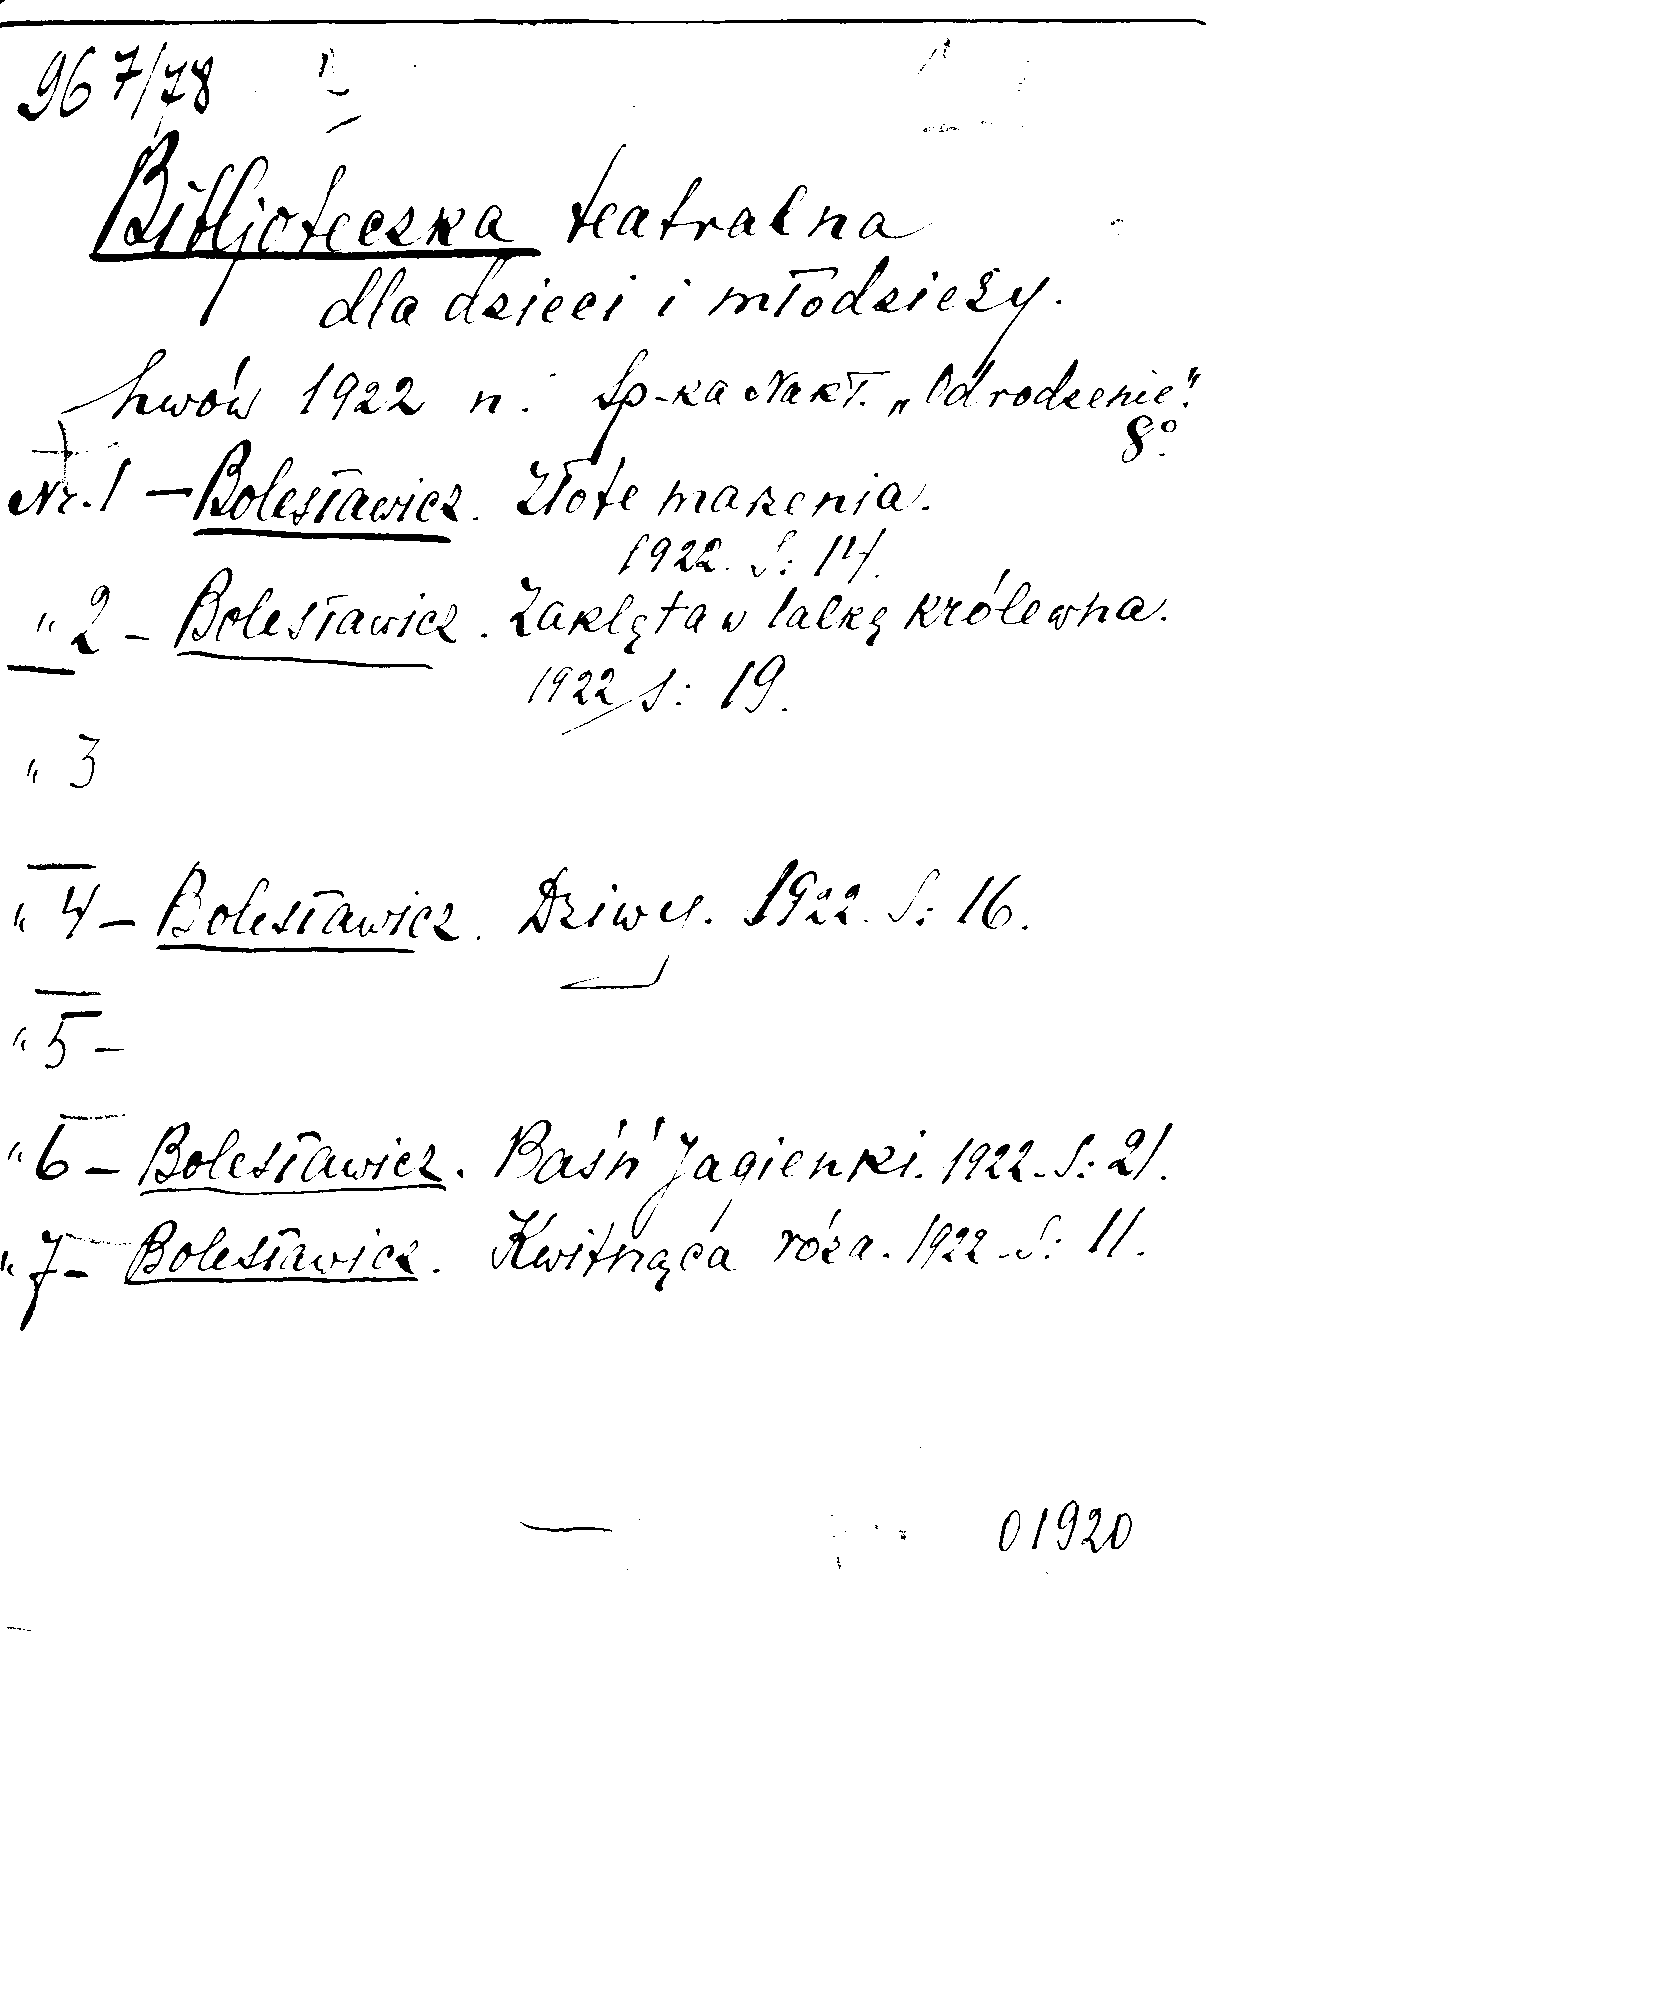 967/78
Bibljoteczka teatralna
dla dzieci i młodzieży.
Lwów 1922 n. Sp-ka Nakł. „Odrodzenie".
8°.
Nr. 1 — Bolesławicz. Złote marzenia.
1922. S: 14.
" 2 - Bolesławicz. Zaklęta w lalkę królewna.
1922 S: 19.
" 3
" 4 - Bolesławicz. Dziwy. 1922. S: 16.
" 5 -
" 6 - Bolesławicz. Baśń Jagienki. 1922. S: 21.
" 7 - Bolesławicz. Kwitnąca róża. 1922. S: 11.
01920